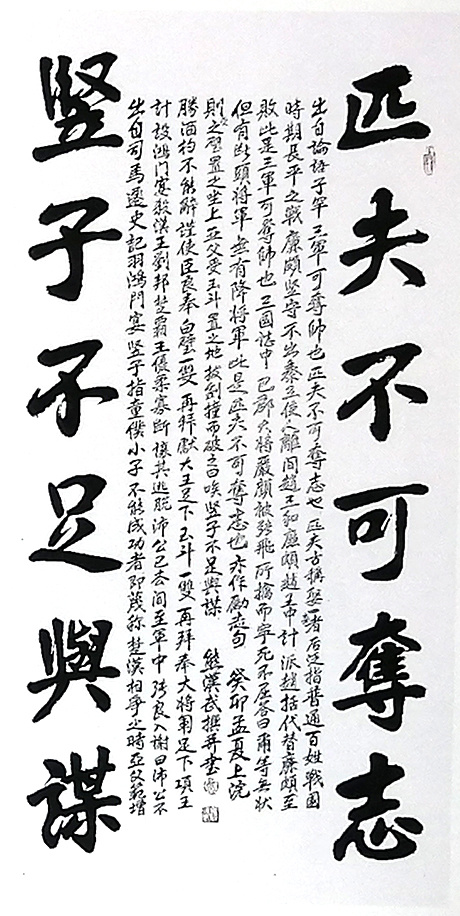 匹夫不可奪志
出自論語子罕三軍可奪帥也匹夫不可奪志也匹夫古稱娶一者后泛指普通百姓戰國
時期長平之戰廉頗堅守不出秦立使人離间趙王和廉頗趙王中計派趙括代替廉頗至
敗此是三軍可奪帥也三國誌中巴郡大將嚴顏被張飛所擒而寧死不屈答曰爾等無狀
但有斷頭將軍無有降將軍此是匹夫不可奪志也亦作勵志句癸卯孟夏上浣
豎子不足與謀
出自司馬遷史記羽鴻門宴豎子指童僕小子不能成功者即蔑称楚漢相爭之時亞父范增
計設鴻門宴殺漢王劉邦楚霸王優柔寡斷讓其逃脫沛公已去间至軍中張良入謝曰沛公不
勝酒杓不能辭謹使臣良奉白璧一雙再拜獻大王足下玉斗一雙再拜奉大將軍足下項王
則受璧置之坐上亞父受玉斗置之地拔劍撞而破之曰唉豎子不足與謀熊漢武撰并書